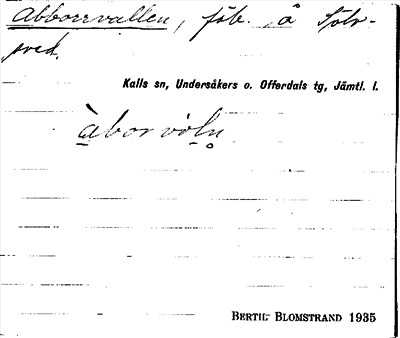 Abborrvallen, fäb. å Sölv-
sved.
Kalls sn, Undersåkers o. Offerdals tg, Jämtl. l.
àborvòln
BERTIL BLOMSTRAND 1935